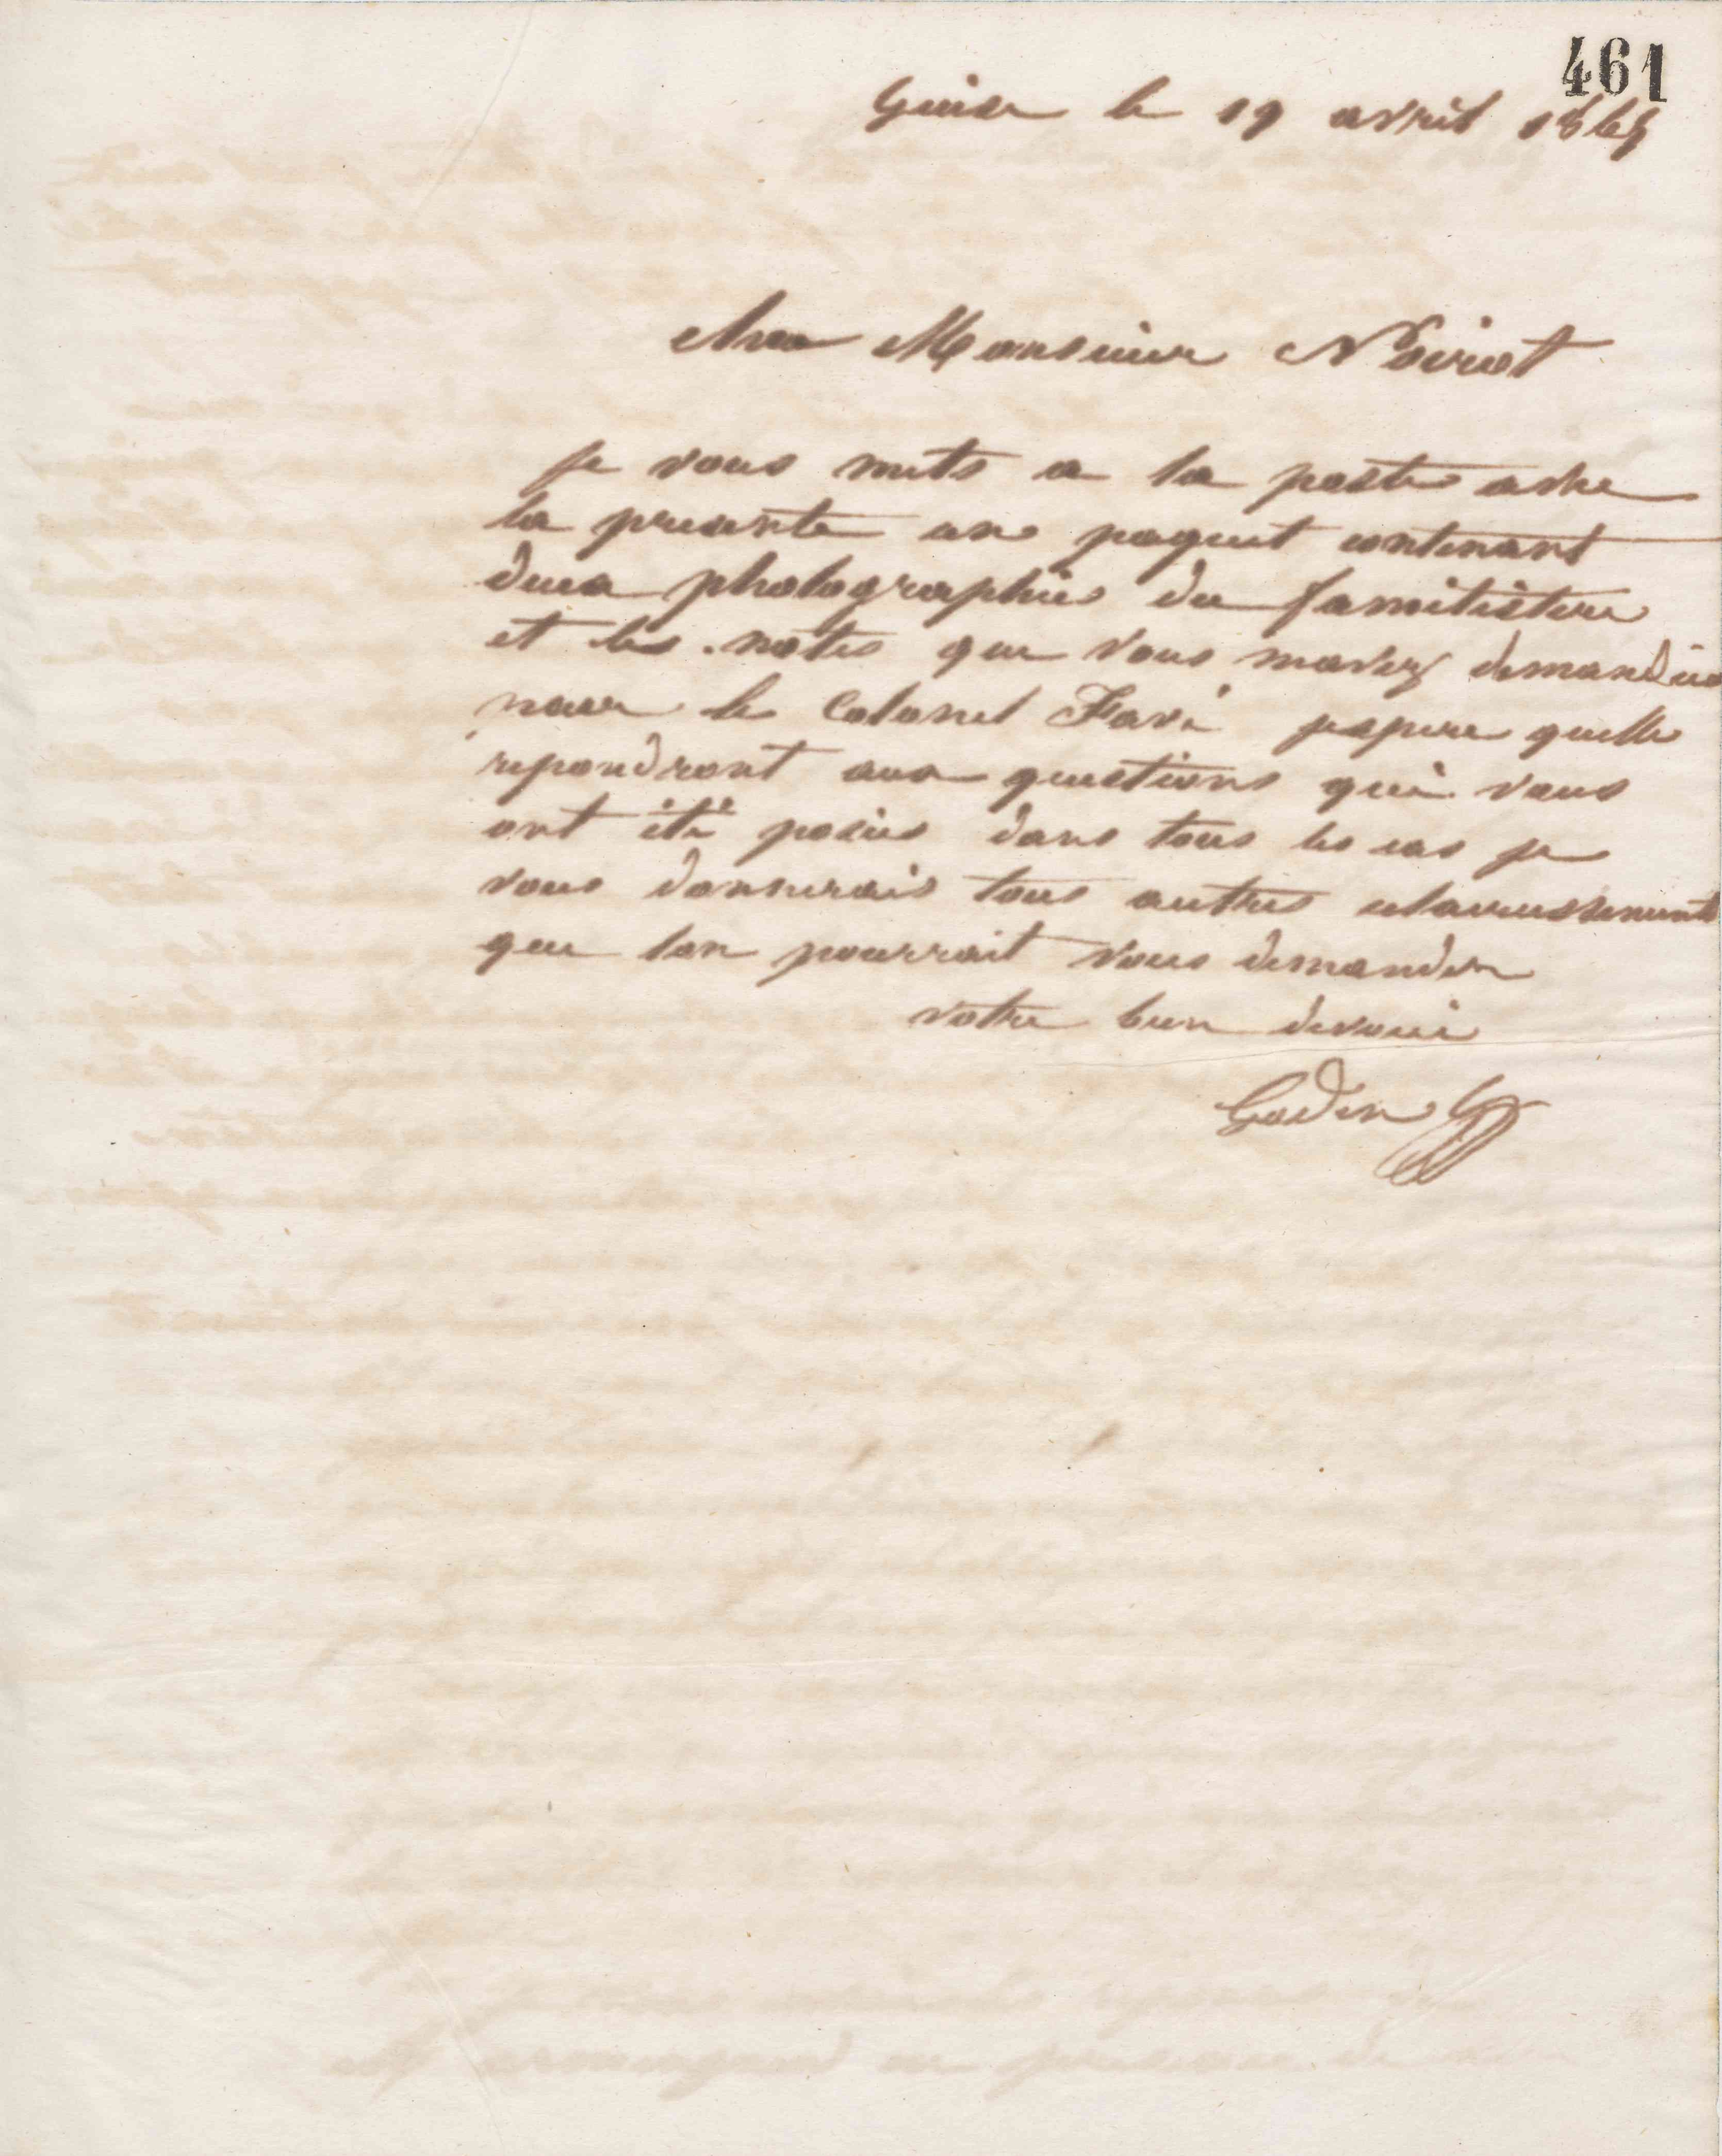 461
Guise le 19 avril 1865
cher Monsieur Noirot
je vous mets a la poste avec
la presente un paquet contenant
deux photographies du familistere
et les notes que vous mavez demandées
pour le Colonel Favé jespere quelle
repondront aux questions qui vous
ont été posées dans tous les cas je
vous donnerais tous autres eclaircissements
que lon pourrait vous demander
votre bien devoué
Godin